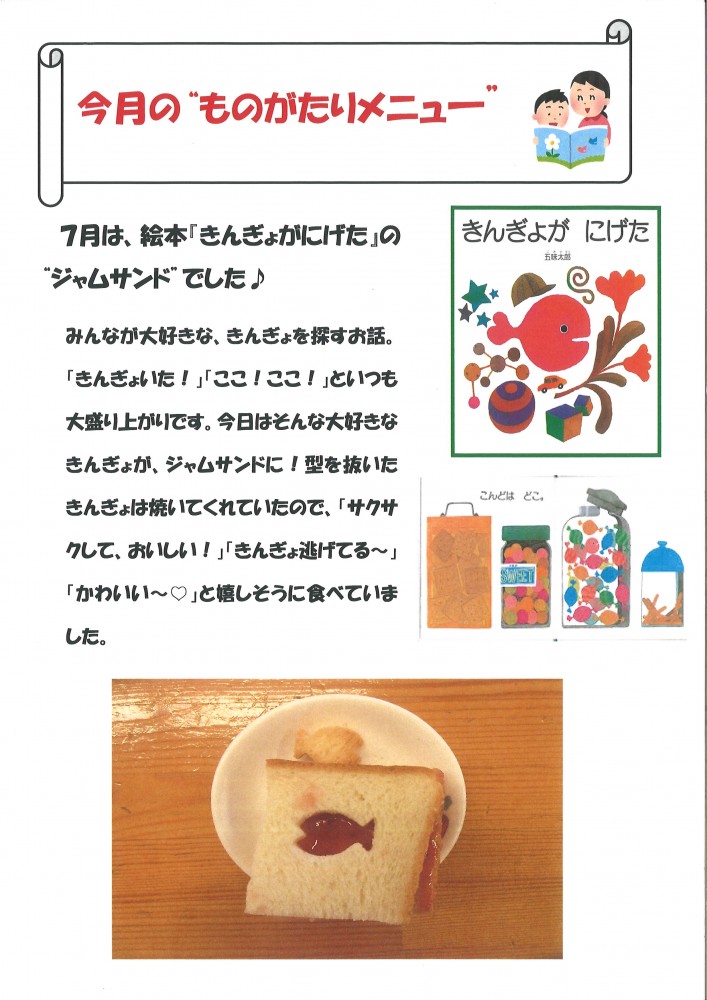 今月の“ものがたりメニュー”
7月は、絵本『きんぎょがにげた』の
“ジャムサンド”でした♪
みんなが大好きな、きんぎょを探すお話。
「きんぎょいた！」「ここ！ここ！」といつも
大盛り上がりです。今日はそんな大好きな
きんぎょが、ジャムサンドに！型を抜いた
きんぎょは焼いてくれていたので、「サクサ
クして、おいしい！」「きんぎょ逃げてる～」
「かわいい～♡」と嬉しそうに食べていま
した。
きんぎょが にげた
五味太郎
こんどは どこ。
SWEET